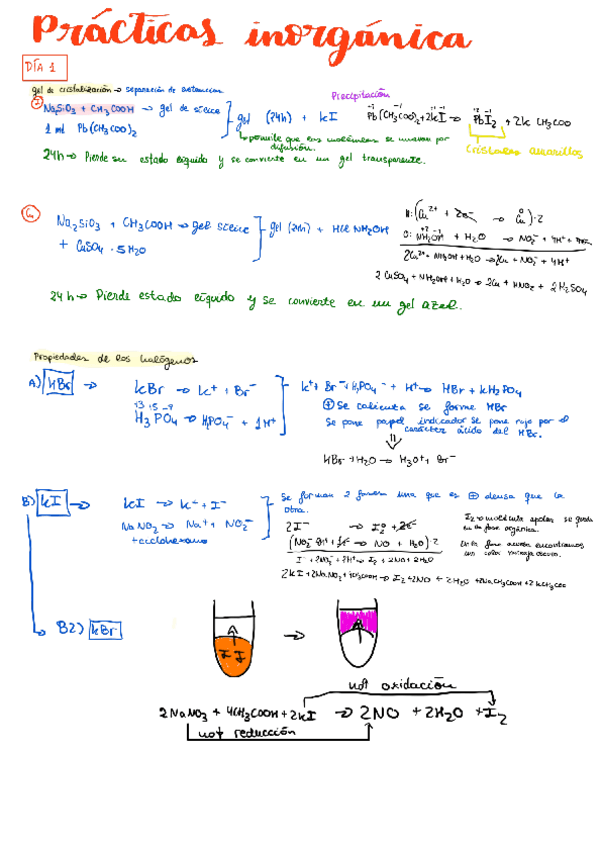 Prácticas inorgánica
DÍA 1
gel de cristalización → separación de sustancias
Precipitación
Na₂SiO₃ + CH₃COOH → gel de sílice
1 ml Pb(CH₃COO)₂
gel (24h) + KI
Pb(CH₃COO)₂+2KI → PbI₂ + 2K CH₃COO
↳ permite que las moléculas se muevan por difusión.
cristales amarillos
24h → Pierde su estado líquido y se convierte en un gel transparente.
Na₂SiO₃ + CH₃COOH → gel sílice
+ CuSO₄ · 5H₂O
gel (24h) + HCl NH₂OH
R: (Cu²⁺ + 2e⁻ → Cu)·2
O: NH₂OH + H₂O → NO₂⁻ +
2Cu²⁺ + NH₂OH + H₂O → 2Cu + NO₂⁻ + 4H⁺
2 CuSO₄ + NH₂OH + H₂O → 2Cu + HNO₂ + 2H₂SO₄
24 h → Pierde estado líquido y se convierte en un gel azul.
Propiedades de los halógenos
A) HBr →
KBr → K⁺ + Br⁻
H₃PO₄ → H₂PO₄⁻ + 1H⁺
K⁺ + Br⁻ + H₂PO₄⁻ + H⁺ → HBr + KH₂PO₄
Se calienta se forme HBr
Se pone papel indicador se pone rojo por el
carácter ácido del HBr.
HBr + H₂O → H₃O⁺ + Br⁻
B) KI →
KI → K⁺ + I⁻
NaNO₂ → Na⁺ + NO₂⁻
+ ciclohexano
Se forman 2 fases una que es ⊕ densa que la
otra.
2I⁻ → I₂⁰ + 2e⁻
I₂ → molécula apolar se queda
en la fase orgánica.
En la fase acuosa encontramos
un color naranja oscuro.
B2) KBr
I I
→
not oxidación
2NaNO₃ + 4CH₃COOH + 2KI → 2NO + 2H₂O + I₂
not reducción